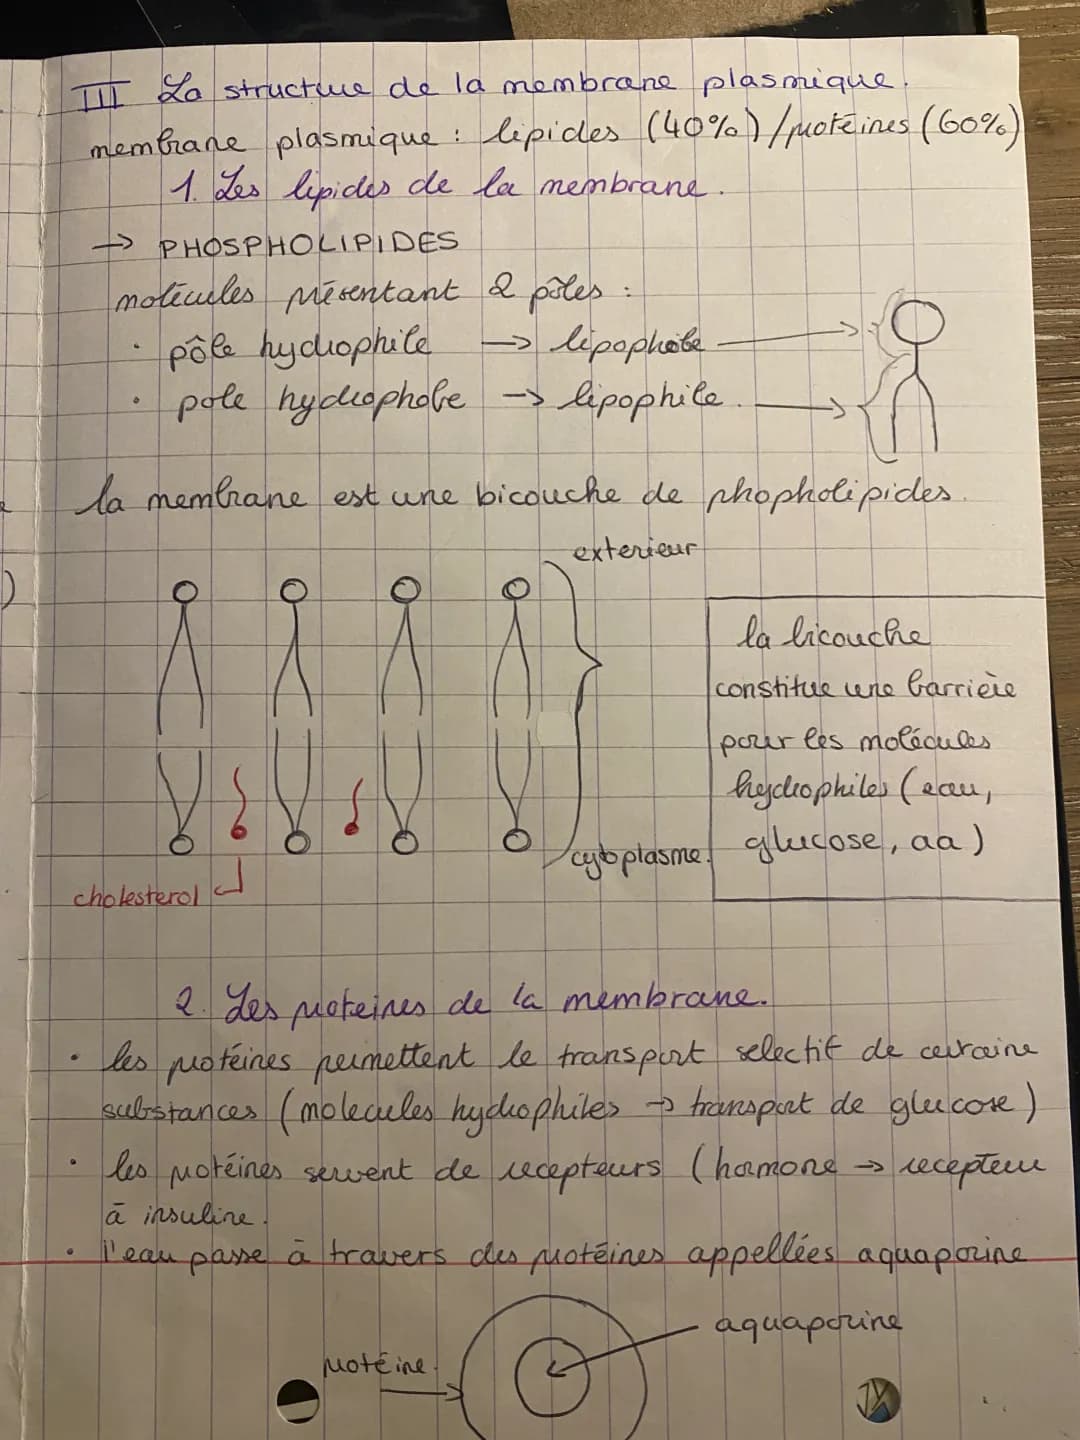 III La structure de la membrane plasmique.
membrane plasmique : lipides (40%) / protéines (60%)
1. Les lipides de la membrane.
→ PHOSPHOLIPIDES
molécules présentant 2 pôles :
• pôle hydrophile → lipophobe
• pole hydrophobe → lipophile.
la membrane est une bicouche de phopholipides.
exterieur
la bicouche
constitue une barrière
pour les molécules
hydrophiles (eau,
glucose, aa)
cytoplasme.
cholesterol
2. Les proteines de la membrane.
• les protéines permettent le transport selectif de certaine
substances (molecules hydrophiles → transport de glucose)
• les protéines servent de recepteurs (hormone → recepteur
à insuline.
• l'eau passe à travers des protéines appellées aquaporine
aquaporine
protéine.